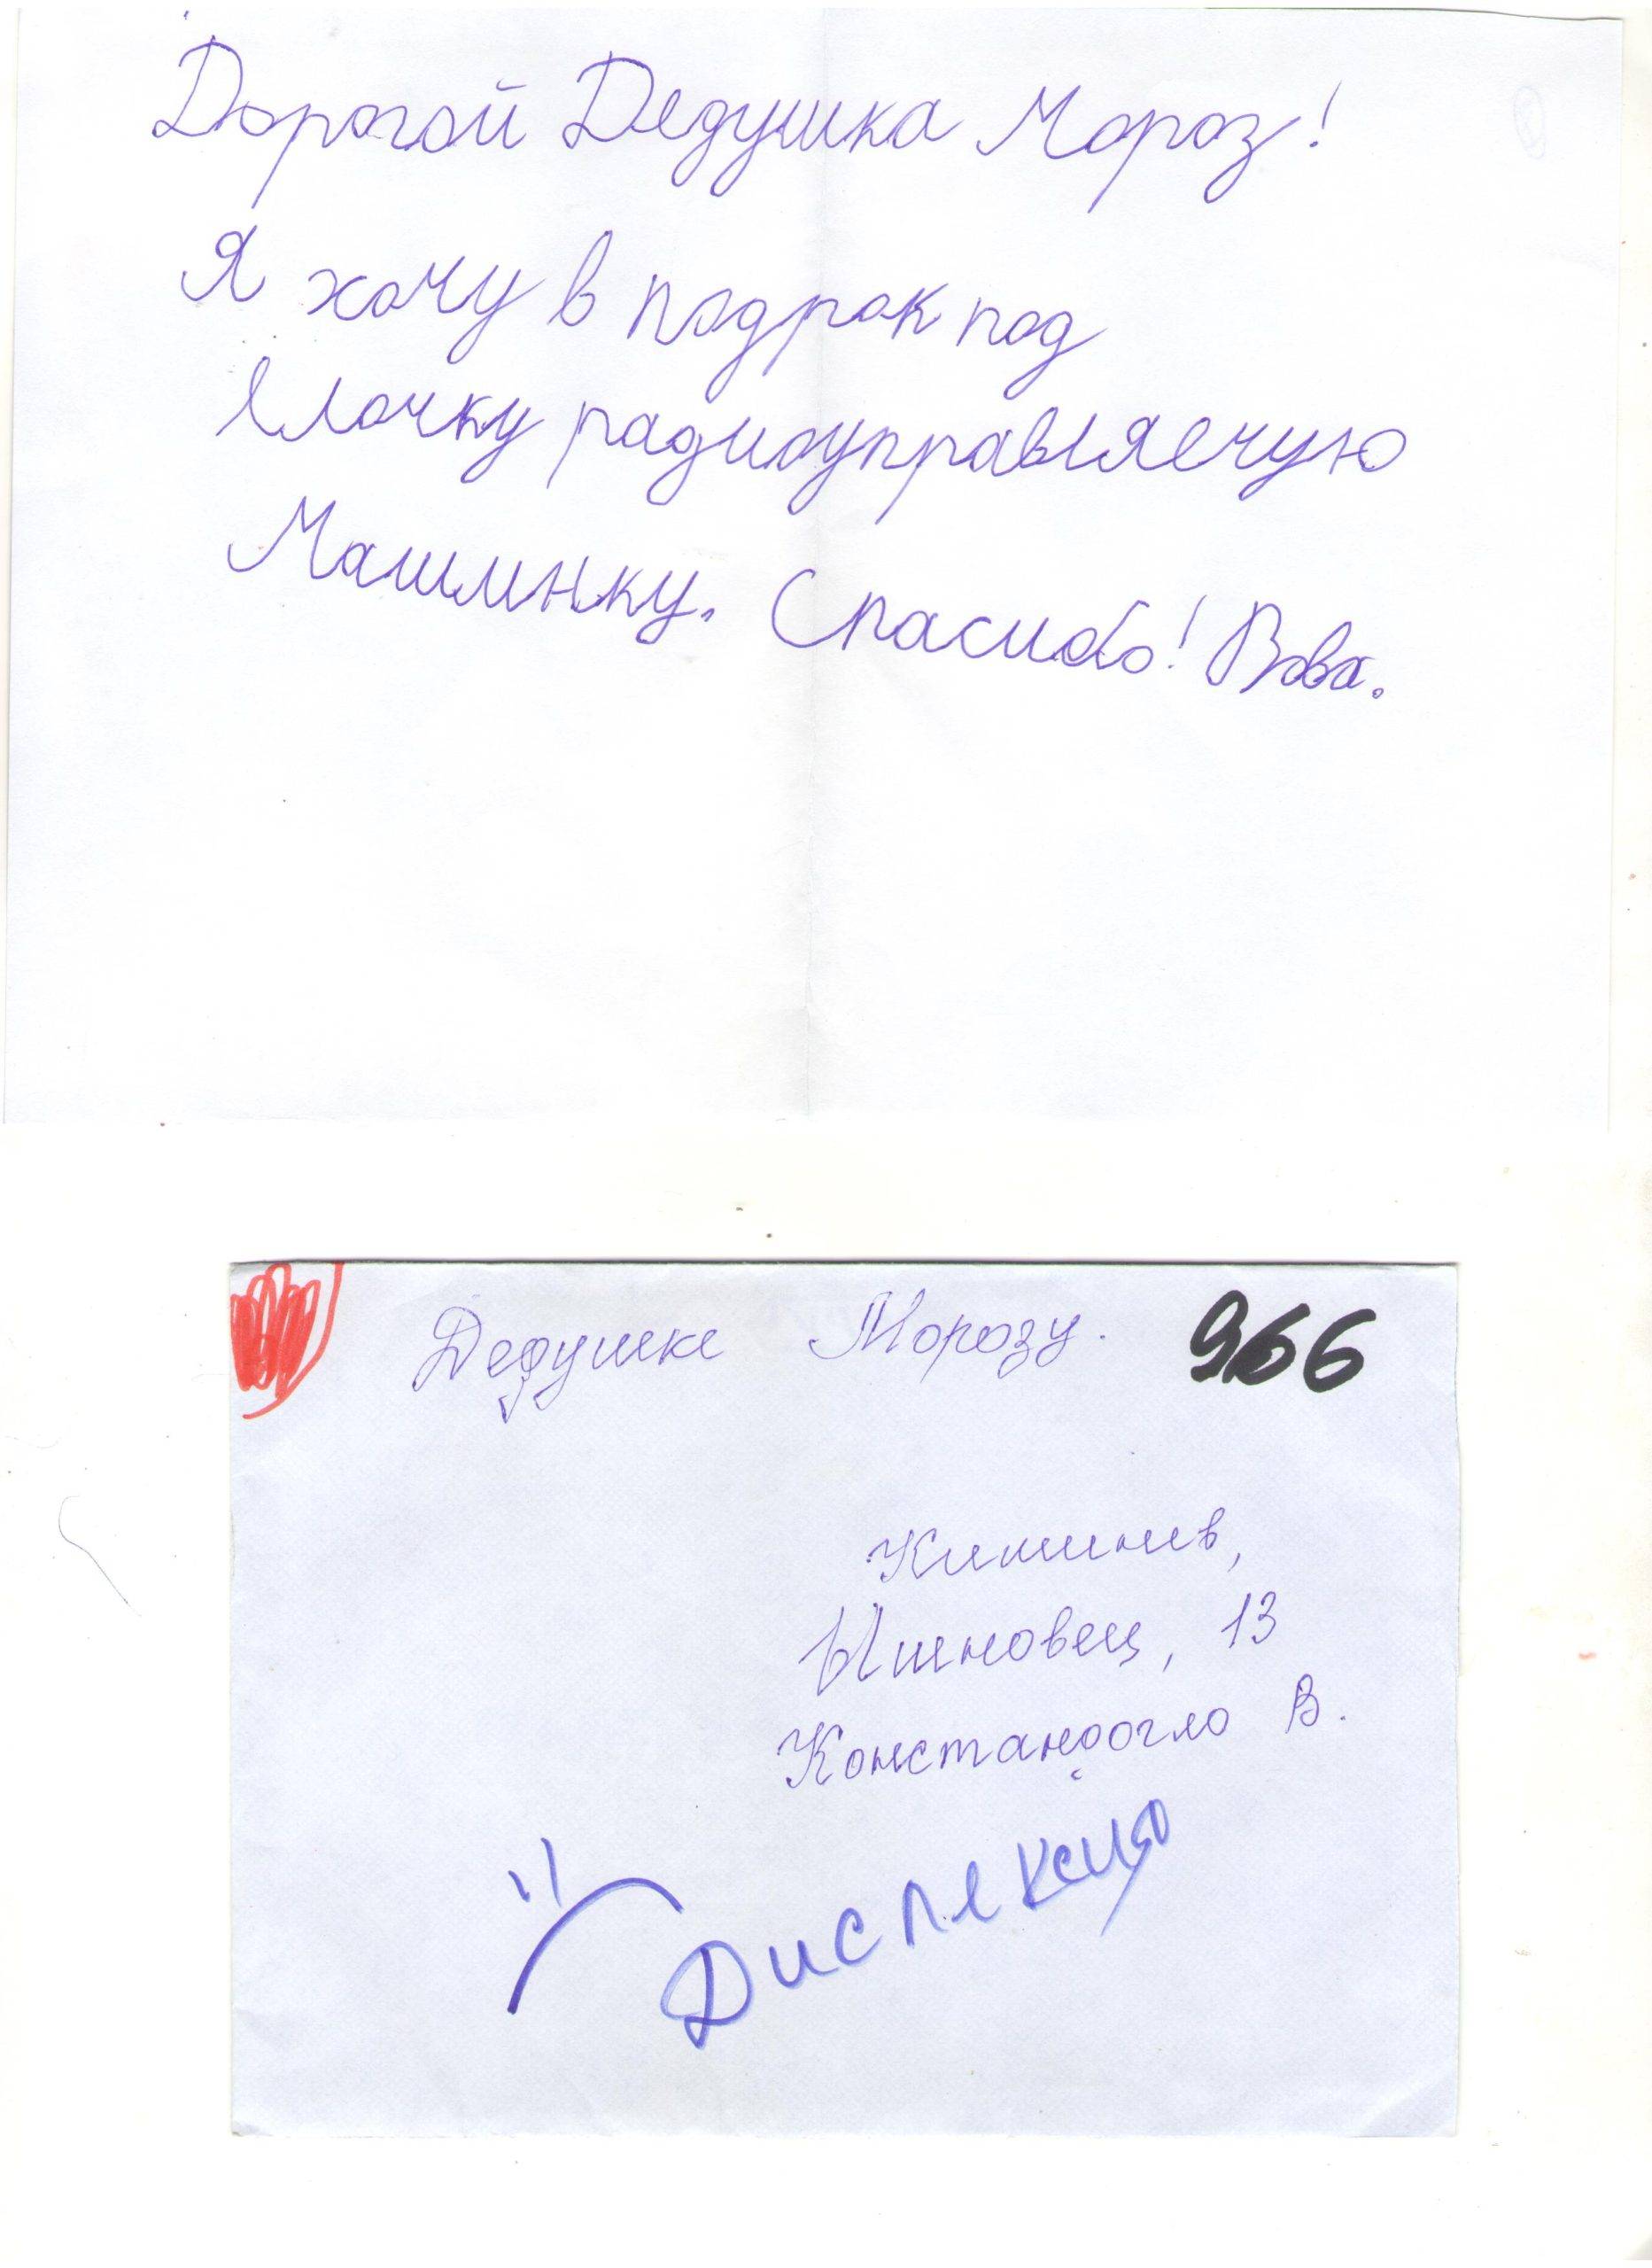 Дорогой Дедушка Мороз!
Я хочу в подрок под
ёлочку радиоуправляечую
Машинку. Спасибо! Вова.
Дедушке Морозу.
966
Кишинев,
Ишновец, 13
Констандогло В.
Дислексия